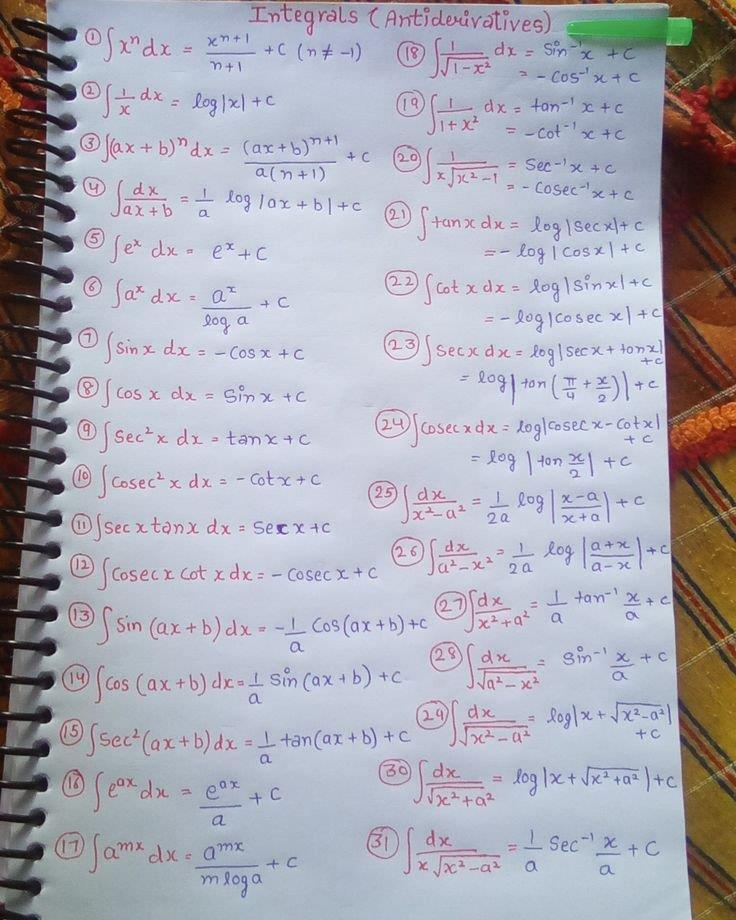 Integrals (Antiderivatives)
① ∫xⁿ dx = xⁿ⁺¹/(n+1) + C (n ≠ -1)
② ∫1/x dx = log|x| + C
③ ∫(ax+b)ⁿ dx = (ax+b)ⁿ⁺¹/(a(n+1)) + C
④ ∫dx/(ax+b) = 1/a log|ax+b| + C
⑤ ∫eˣ dx = eˣ + C
⑥ ∫aˣ dx = aˣ/(log a) + C
⑦ ∫sin x dx = -cos x + C
⑧ ∫cos x dx = sin x + C
⑨ ∫sec² x dx = tan x + C
⑩ ∫cosec² x dx = -cot x + C
⑪ ∫sec x tan x dx = sec x + C
⑫ ∫cosec x cot x dx = -cosec x + C
⑬ ∫sin (ax+b) dx = -1/a cos(ax+b) + C
⑭ ∫cos (ax+b) dx = 1/a sin(ax+b) + C
⑮ ∫sec² (ax+b) dx = 1/a tan(ax+b) + C
⑯ ∫eᵃˣ dx = eᵃˣ/a + C
⑰ ∫aᵐˣ dx = aᵐˣ/(m log a) + C
⑱ ∫1/√(1-x²) dx = sin⁻¹x + C
= -cos⁻¹x + C
⑲ ∫1/(1+x²) dx = tan⁻¹ x + C
= -cot⁻¹ x + C
⑳ ∫1/(x√(x²-1)) = sec⁻¹x + C
= -cosec⁻¹x + C
㉑ ∫tan x dx = log|sec x| + C
= -log|cos x| + C
㉒ ∫cot x dx = log|sin x| + C
= -log|cosec x| + C
㉓ ∫sec x dx = log|sec x + tan x|
+ C
= log|tan(π/4 + x/2)| + C
㉔ ∫cosec x dx = log|cosec x - cot x|
+ C
= log|tan x/2| + C
㉕ ∫dx/(x²-a²) = 1/2a log|(x-a)/(x+a)| + C
㉖ ∫dx/(a²-x²) = 1/2a log|(a+x)/(a-x)| + C
㉗ ∫dx/(x²+a²) = 1/a tan⁻¹ x/a + C
㉘ ∫dx/√(a²-x²) = sin⁻¹ x/a + C
㉙ ∫dx/√(x²-a²) = log|x + √(x²-a²)|
+ C
㉚ ∫dx/√(x²+a²) = log|x + √(x²+a²)| + C
㉛ ∫dx/(x√(x²-a²)) = 1/a sec⁻¹ x/a + C